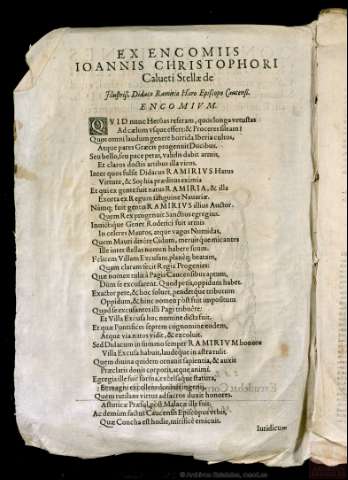 EX ENCOMIIS
IOANNIS CHRISTOPHORI
Calueti Stellæ de
Illustriss. Didaco Ramiria Haro Episcopo Concensi.
ENCOMIVM.
QVID nunc Heröas referam, quos longa vetustas
Ad cælum vsque effert; & Proceres sileam?
Quos omni laudum genere horrida Iberia cultos,
Atque pares Græcis progenuit Ducibus.
Seu bello, seu pace peras, validis dabit armis,
Et claros doctis artibus illa viros.
Inter quos fulsit Didacus RAMIRIVS Harus
Virtute, & Sophia præditus eximia
Et qui ex gente fuit natus RAMIRIA, & illa
Exorta ex Regum sanguine Nauariæ.
Namq; fuit gentis RAMIRIVS illius Auctor.
Quem Rex progenuit Sanctius egregius.
Inuictíque Gener Roderici fuit armis
In celeres Mauros, atque vagos Numidas,
Quem Mauri dixere Cidum, meruitque micantes
Ille inter stellas nomen habere suum.
Felicem Villam Excusant, planéq; beatam,
Quam claram fecit Regia Progenies:
Quæ nomen tulit à Pagis Caucensibus aptum,
Dum se excusarent. Quod petis, oppidum habet.
Exactor petit, & hoc soluet, pendetque tributum
Oppidum, & hinc nomen post fuit impositum
Quod se excusantes illi Pagi tribuere:
Et Villa Excusa hoc nomine dicta fuit.
Et quæ Pontifices septem cognomine eodem,
Atque via natos vidit, & excoluit.
Sed Didacum in summo semper RAMIRVM honore
Villa Excusa habuit, laudeque in astra tulit.
Quem diuina quidem ornauit sapientia, & auxit
Præclaris donis corporis, atque animi.
Egregia ille fuit forma, excelsaque statura,
Et magni excellens dexteritate ingenij.
Quem rutilans virtus ad sacros duxit honores.
Asturicæ Præsul, póst Malacæ ille fuit.
Ac demum factus Caucensis Episcopus vrbis,
Quæ Concha est hodie, mirificè enicuit.
Iuridicum